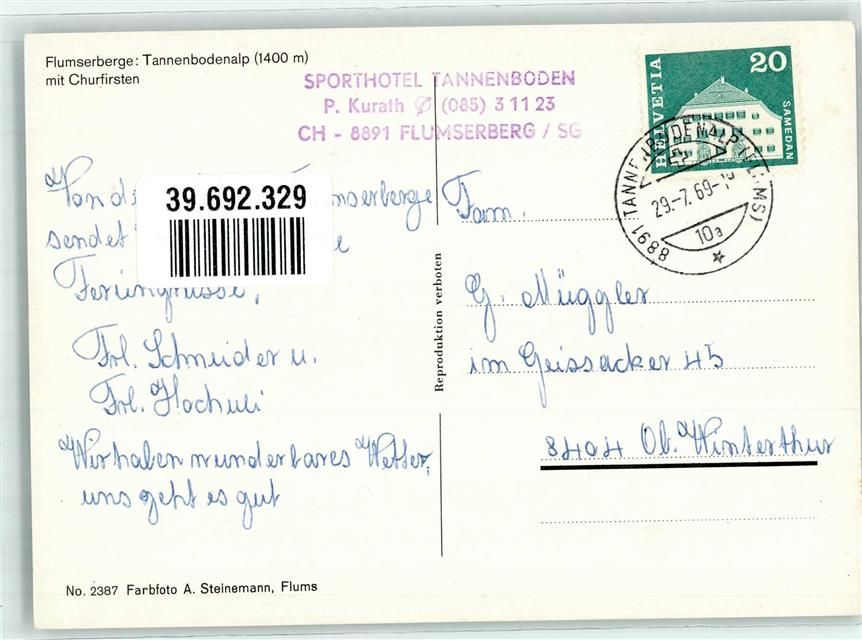 Flumserberge: Tannenbodenalp (1400 m)
mit Churfirsten
SPORTHOTEL TANNENBODEN
P. Kurath (085) 3 11 23
CH - 8891 FLUMSERBERG / SG
HELVETIA
20
SAMEDAN
8891 TANNENBODENALP (FLUMS)
29.-7.69-1
10a
39.692.329
Von de
sendet
Feriengrüsse,
Frl. Schneider u.
Frl. Hochuli
Wir haben wunderbares Wetter,
uns geht es gut
Reproduktion verboten
Fam.
G. Müggler
im Geissacker 45
8404 Ob. Winterthur
No. 2387 Farbfoto A. Steinemann, Flums